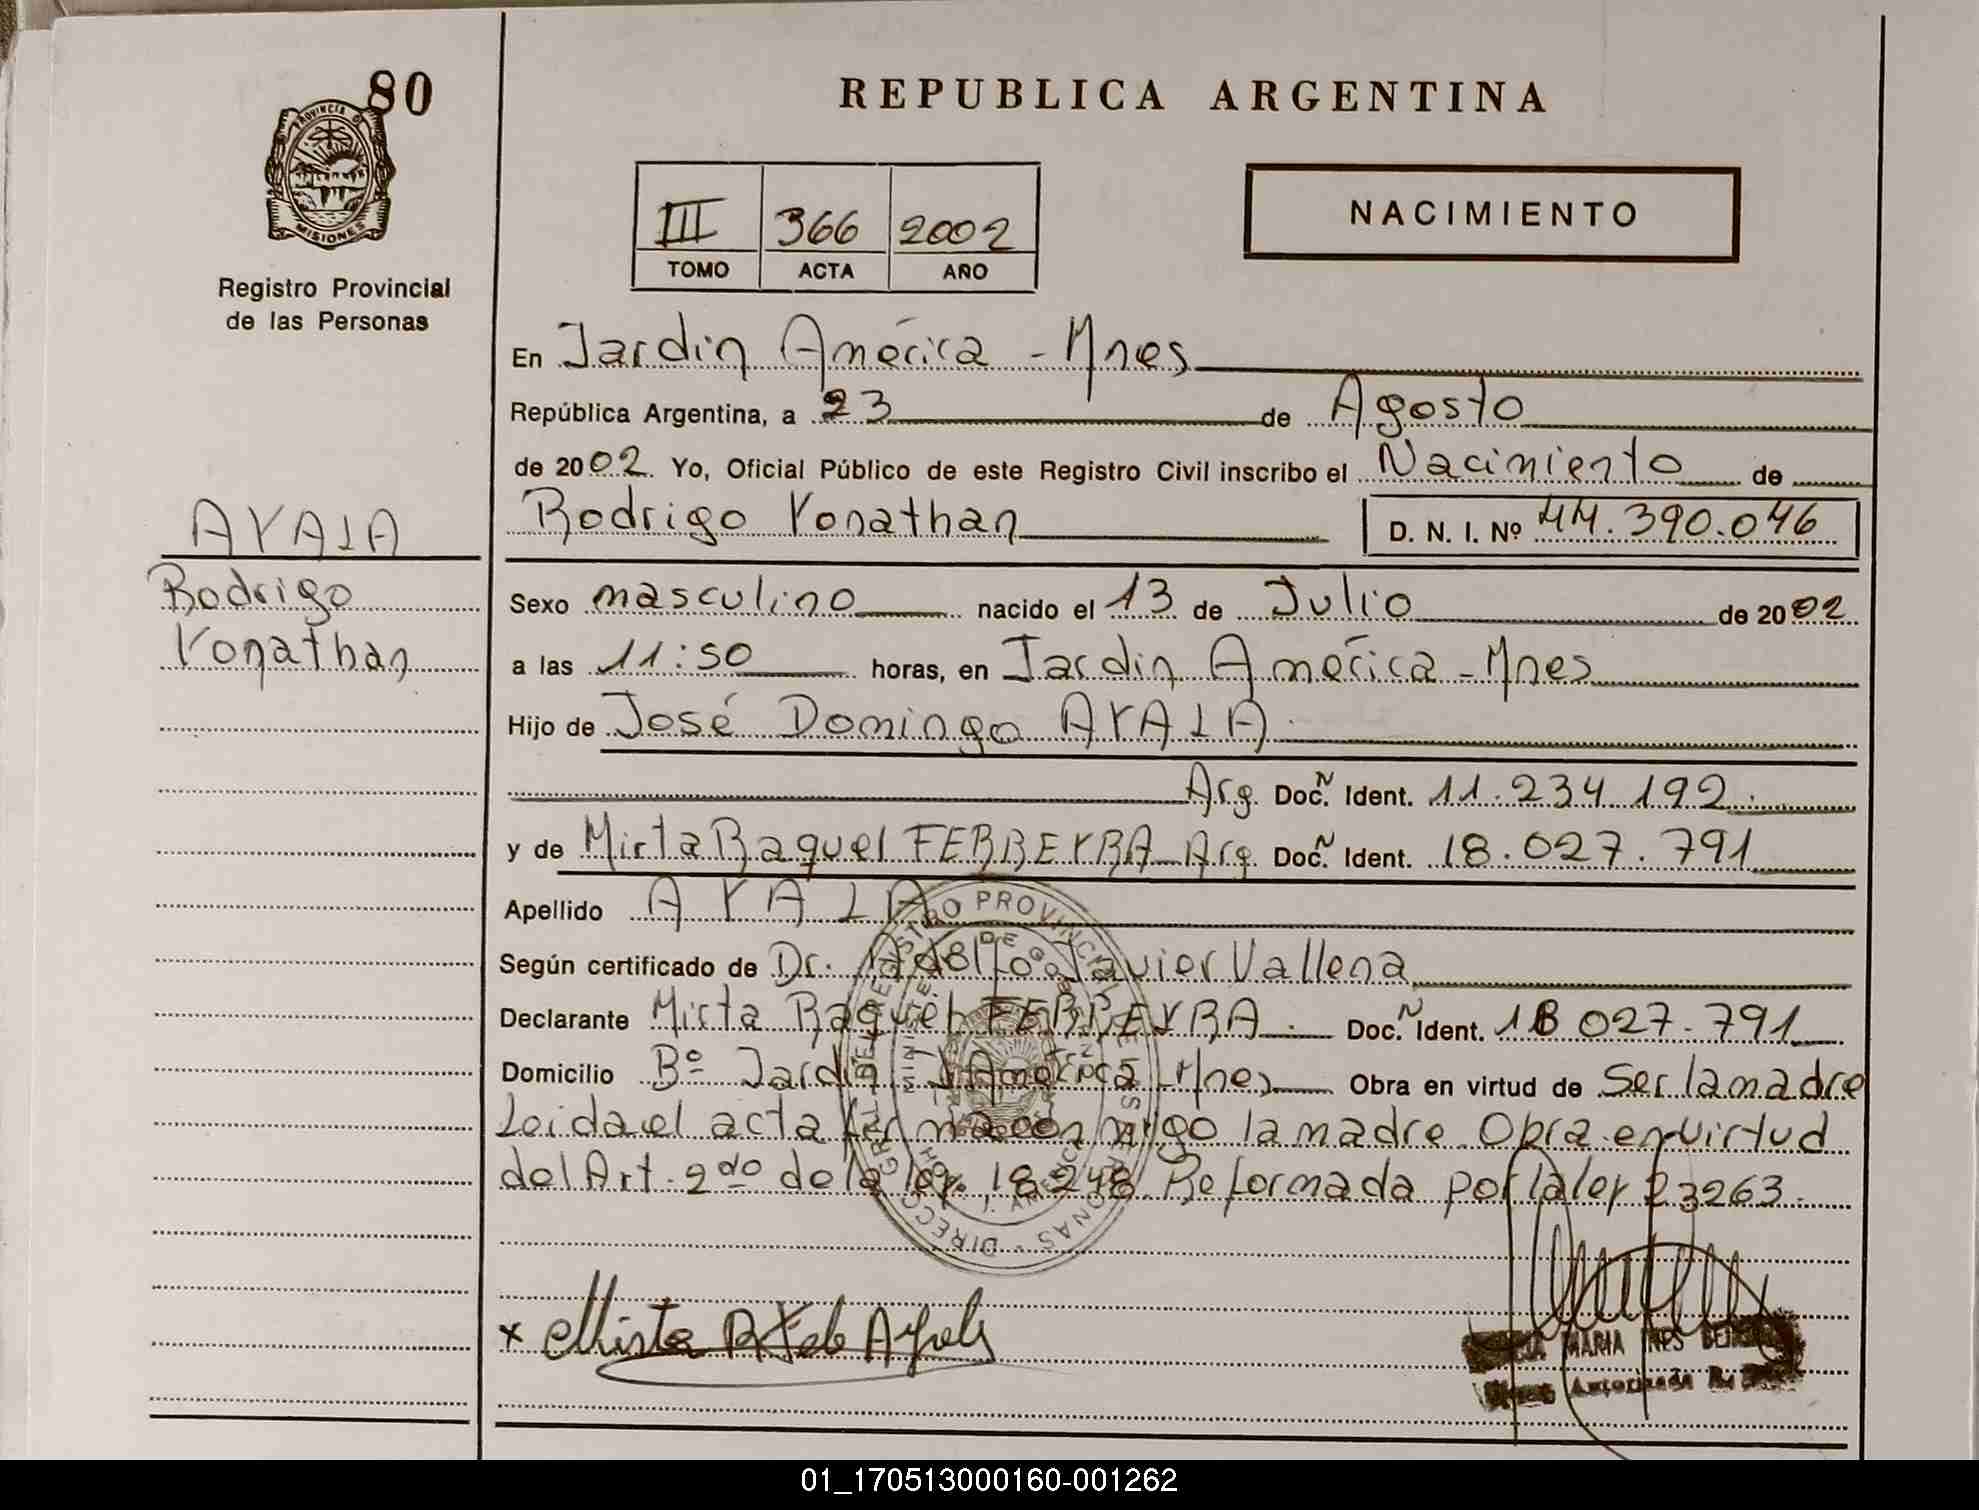 80
PROVINCIA DE
MISIONES
Registro Provincial
de las Personas
REPUBLICA ARGENTINA
III 366 2002
TOMO ACTA AÑO
NACIMIENTO
En Jardin América - Mnes
República Argentina, a 23 de Agosto
de 2002. Yo, Oficial Público de este Registro Civil inscribo el Nacimiento de
Rodrigo Yonathan D. N. I. Nº 44.390.046
AYALA
Rodrigo
Yonathan
Sexo masculino nacido el 13 de Julio de 2002
a las 11:50 horas, en Jardin América - Mnes
Hijo de José Domingo AYALA
Arg. Doc. N Ident. 11.234.192
y de Mirta Raquel FERREYRA Arg. Doc. N Ident. 18.027.791
Apellido AYALA
Según certificado de Dr. Javier Vallena
Declarante Mirta Raquel FERREYRA. Doc. N Ident. 18 027.791
Domicilio Bº Jardin J. América Mnes Obra en virtud de Ser la madre
Leida el acta firma conmigo la madre. Obra en virtud
del Art. 2do de la ley. 18.248. Reformada por la ley 23263.
x Mirta R F de Ayala
MARIA INES
Autorizada
01_170513000160-001262